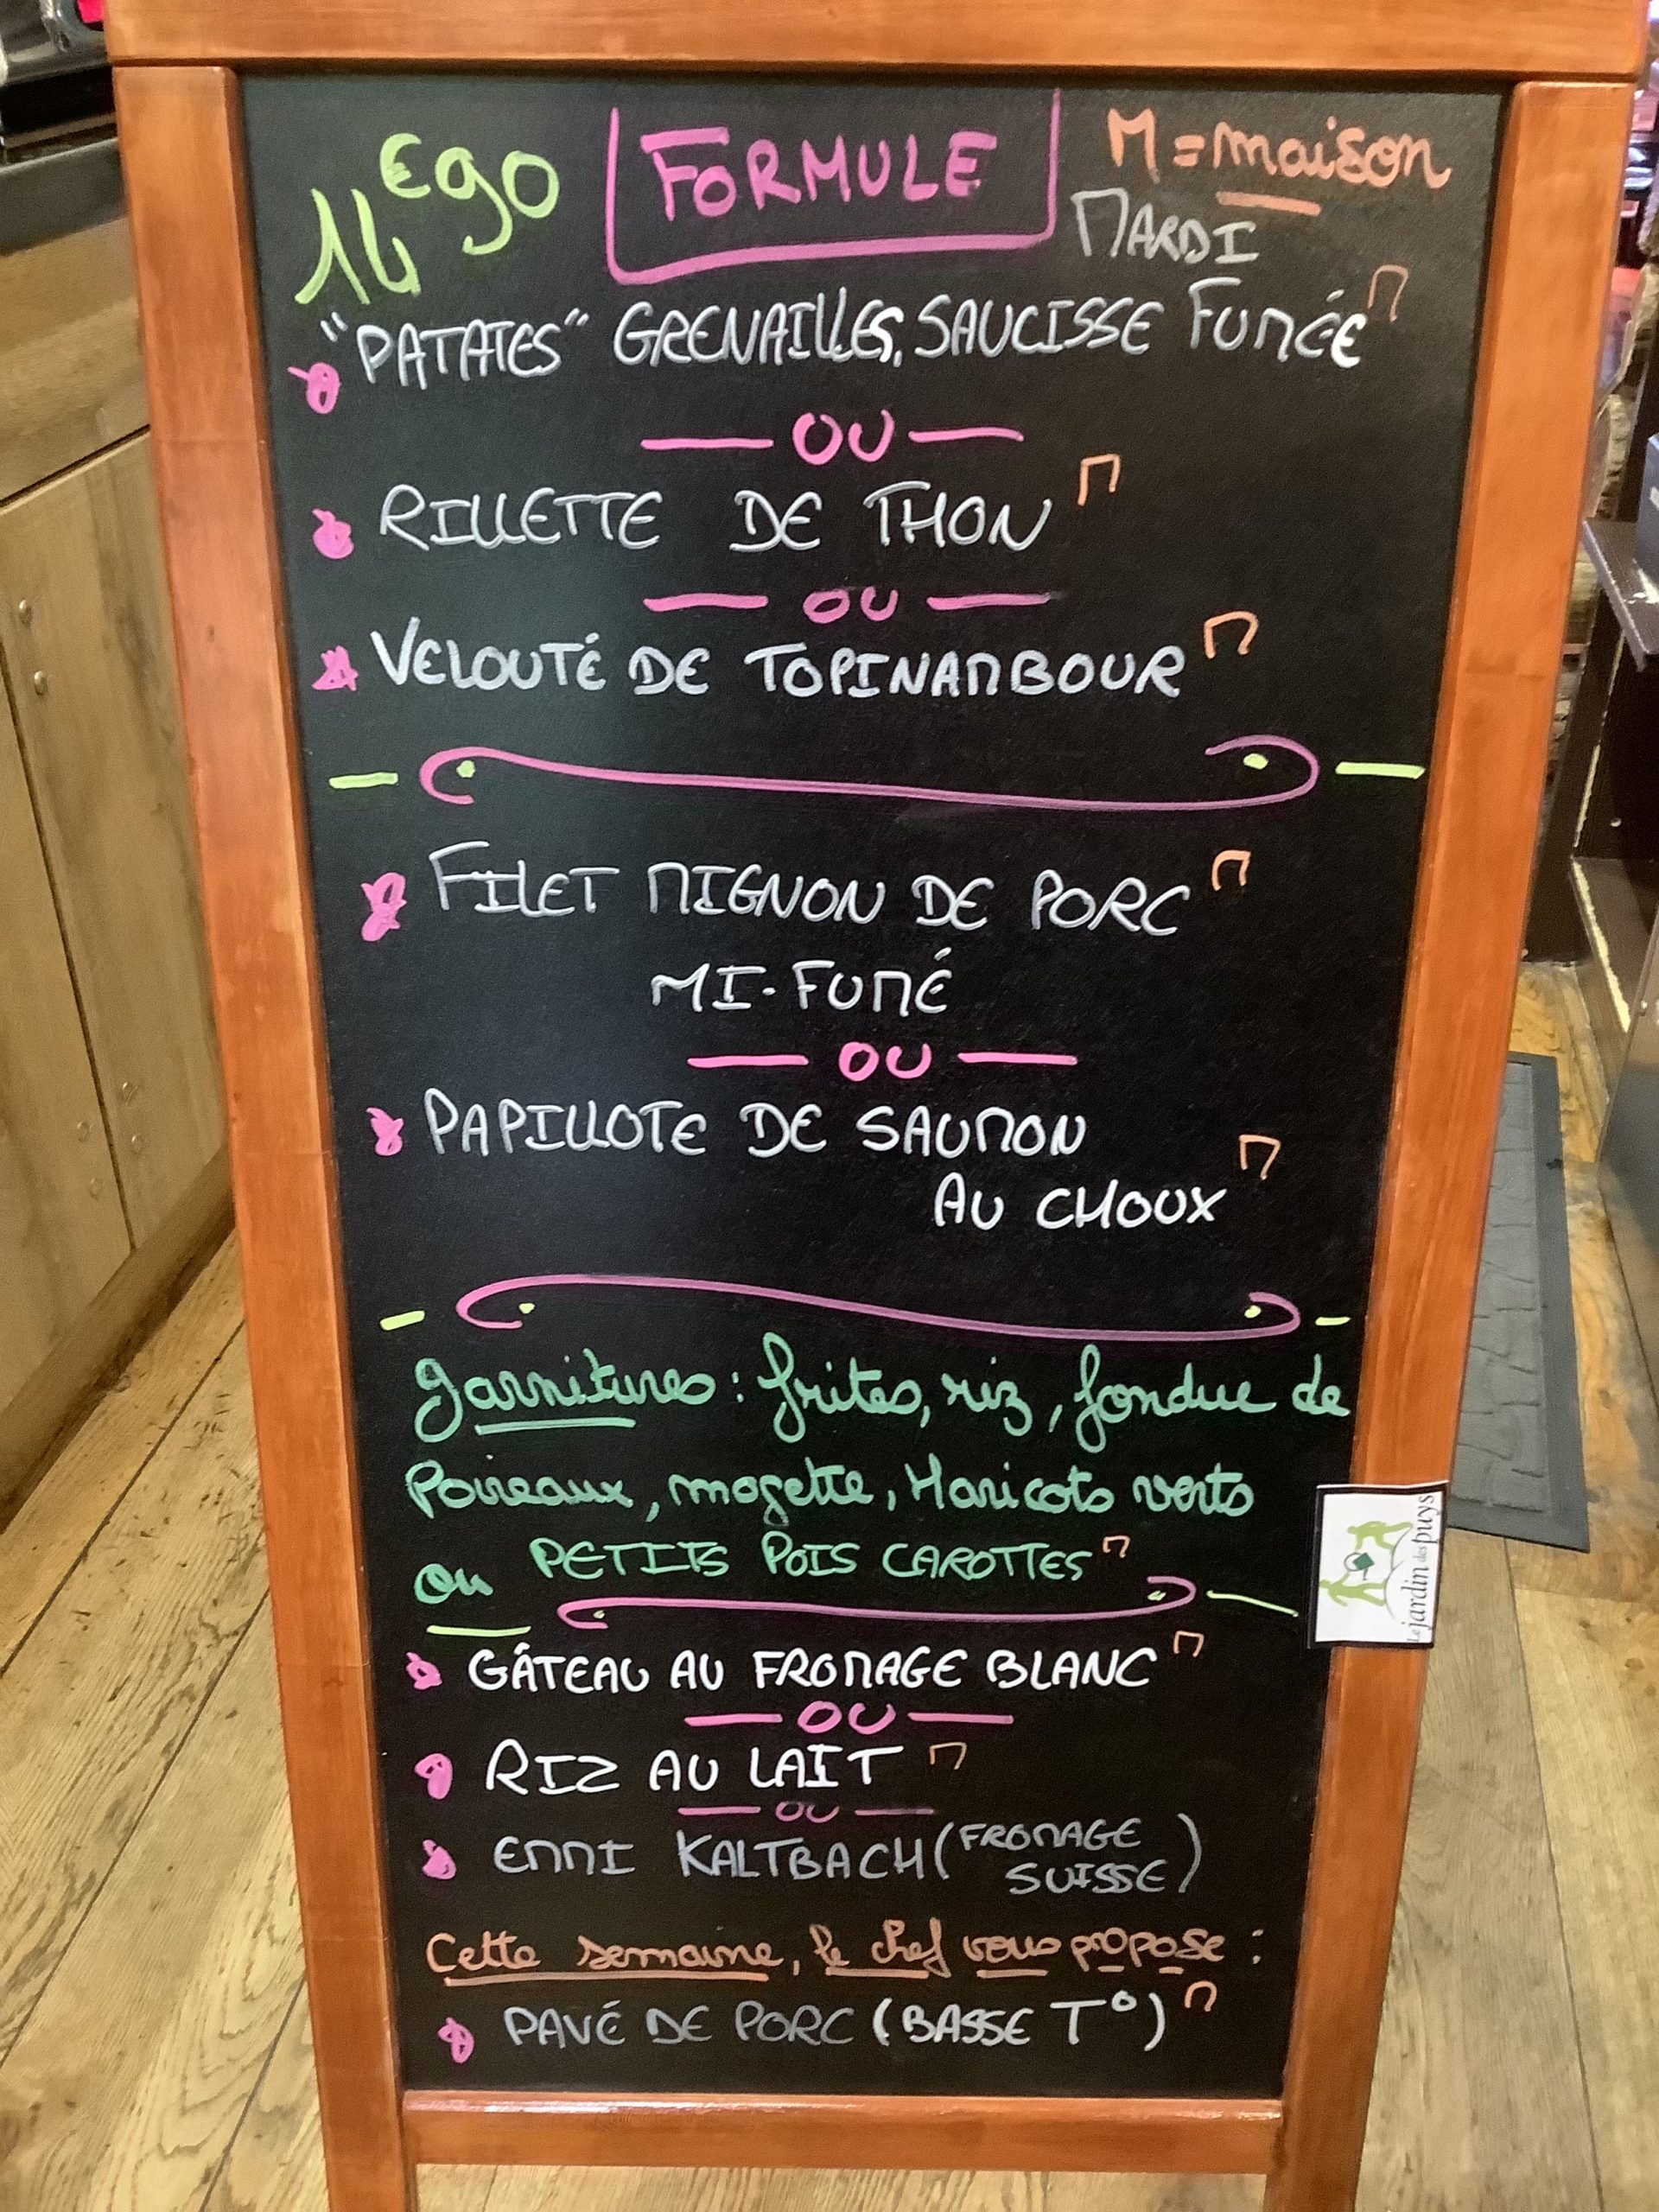 14€90 FORMULE M=maison
MARDI
"PATATES" GRENAILLES, SAUCISSE FUMÉE M
OU
RILLETTE DE THON M
OU
VELOUTÉ DE TOPINAMBOUR M
FILET MIGNON DE PORC M
MI-FUMÉ
OU
PAPILLOTE DE SAUMON
AU CHOUX M
garnitures : frites, riz, fondue de
Poireaux, mogette, Haricots verts
ou PETITS POIS CAROTTES M
GÂTEAU AU FROMAGE BLANC M
OU
RIZ AU LAIT M
OU
EMMI KALTBACH (FROMAGE
SUISSE)
Cette semaine, le chef vous propose :
PAVÉ DE PORC (BASSE T°) M
Le jardin des puys